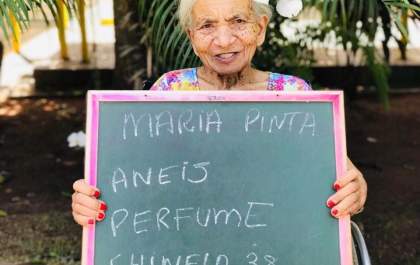 MARIA PINTA
ANEIS
PERFUME
CHINELO 38